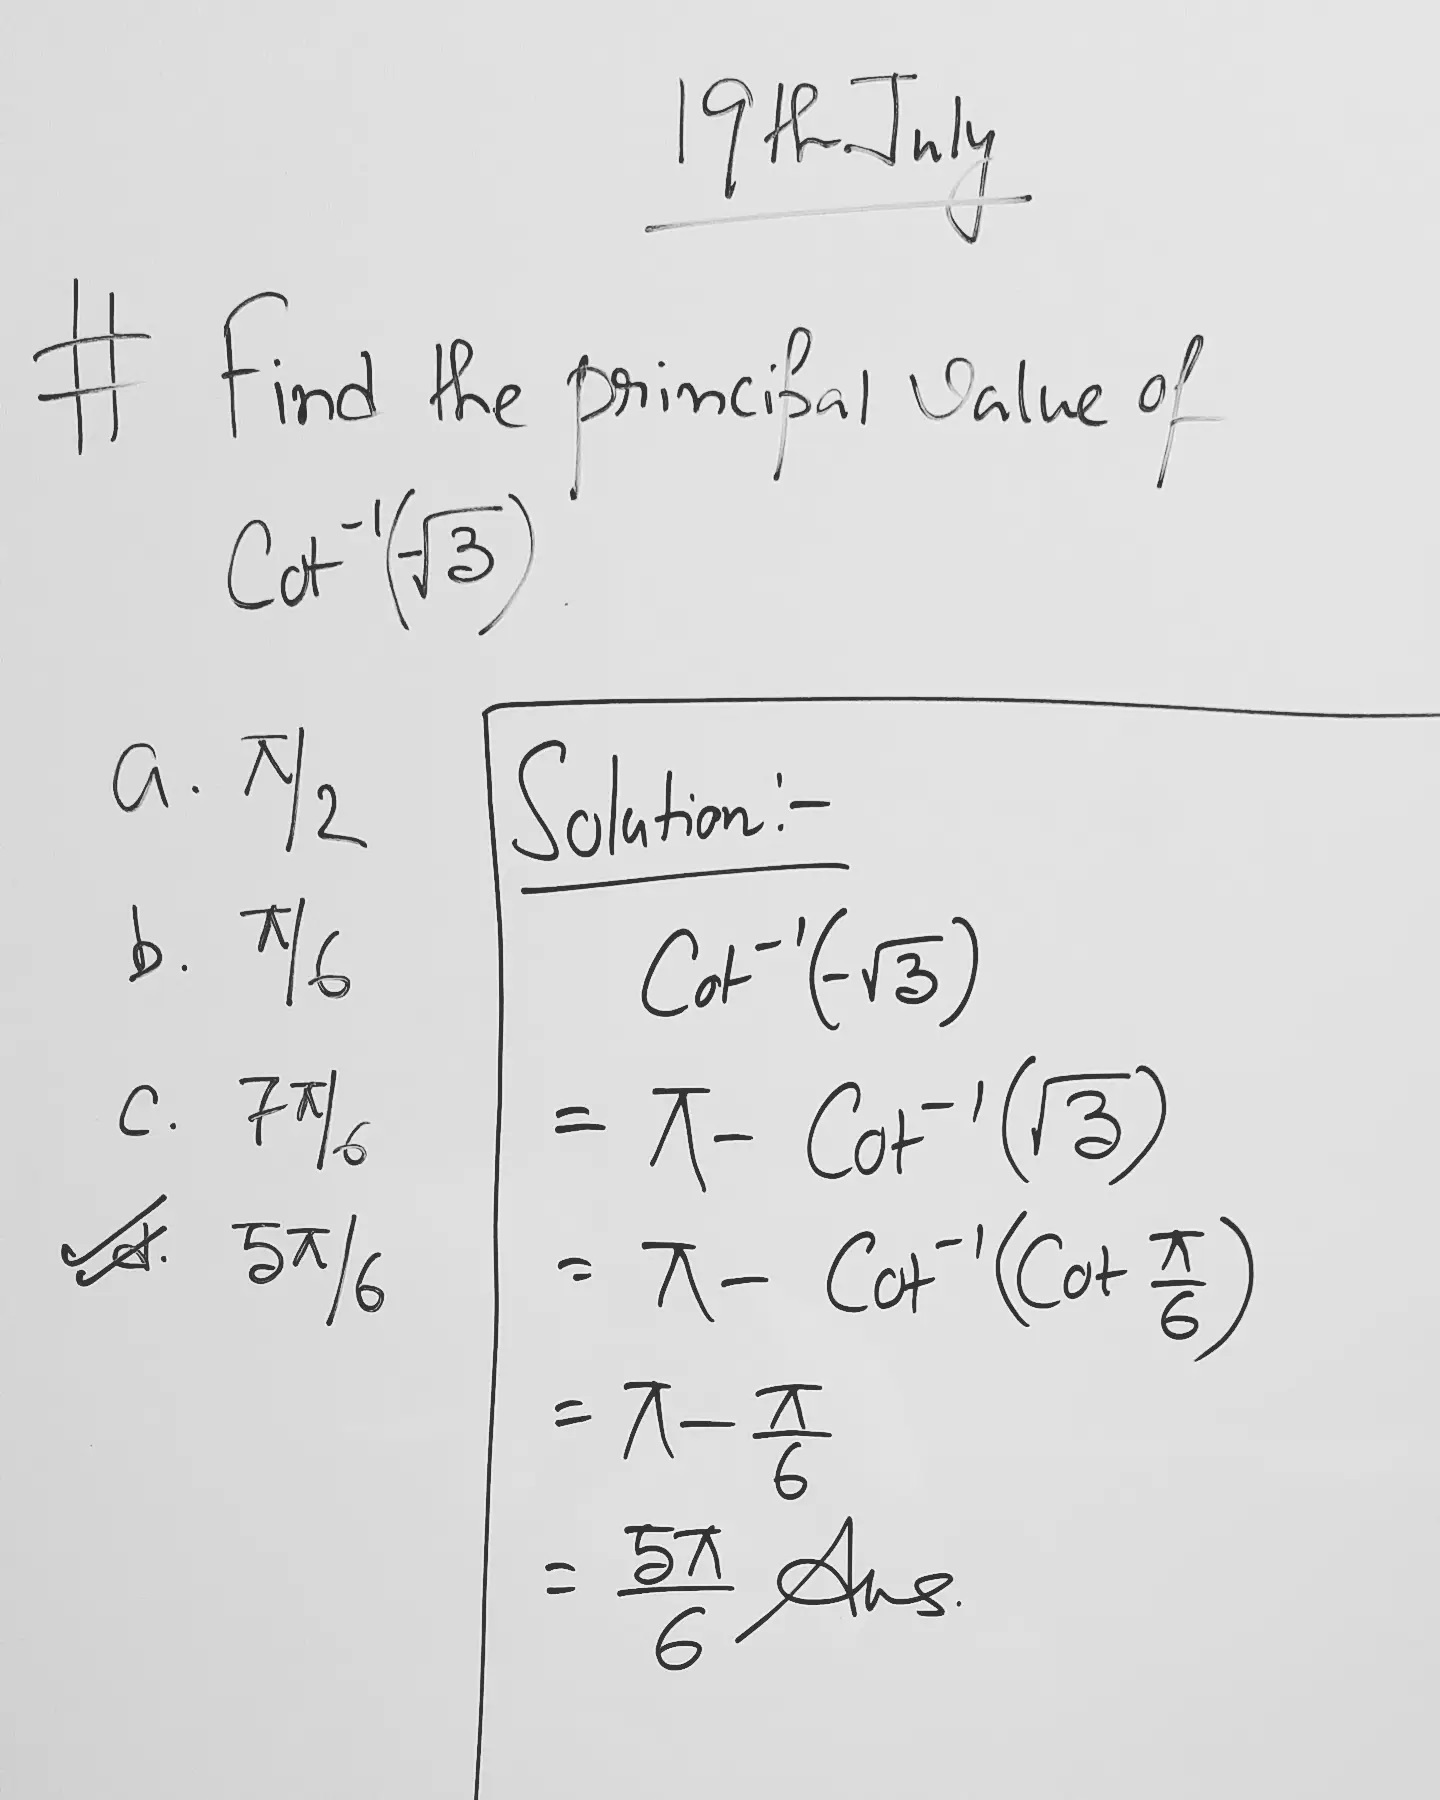 19th July
# Find the principal value of
Cot⁻¹(-√3)
a. π/2
b. π/6
c. 7π/6
d. 5π/6
Solution:-
Cot⁻¹(-√3)
= π - Cot⁻¹(√3)
= π - Cot⁻¹(Cot π/6)
= π - π/6
= 5π/6 Ans.